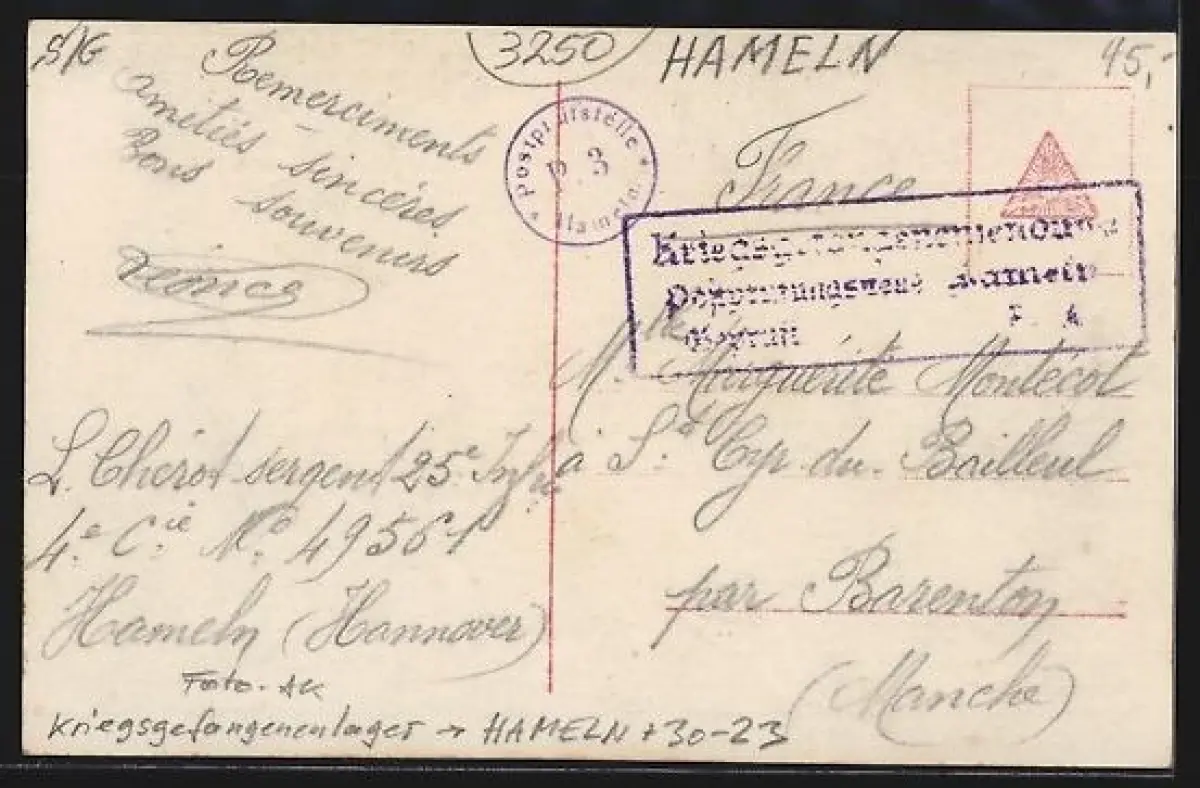 S/G
3250
HAMELN
45,-
Remerciments
amitiés sincéres
Bons souvenirs
Léonce
L. Chérot sergent 25e Infie
4e Cie No 49561
Hameln (Hannover)
Foto-AK
Kriegsgefangenenlager → HAMELN +30-23
Postprüfstelle
P. 3
Hameln
France
Hameln
Geprüft
F. A
Mlle Marguérite Montécot
à St Cyr du Bailleul
par Barenton
(Manche)